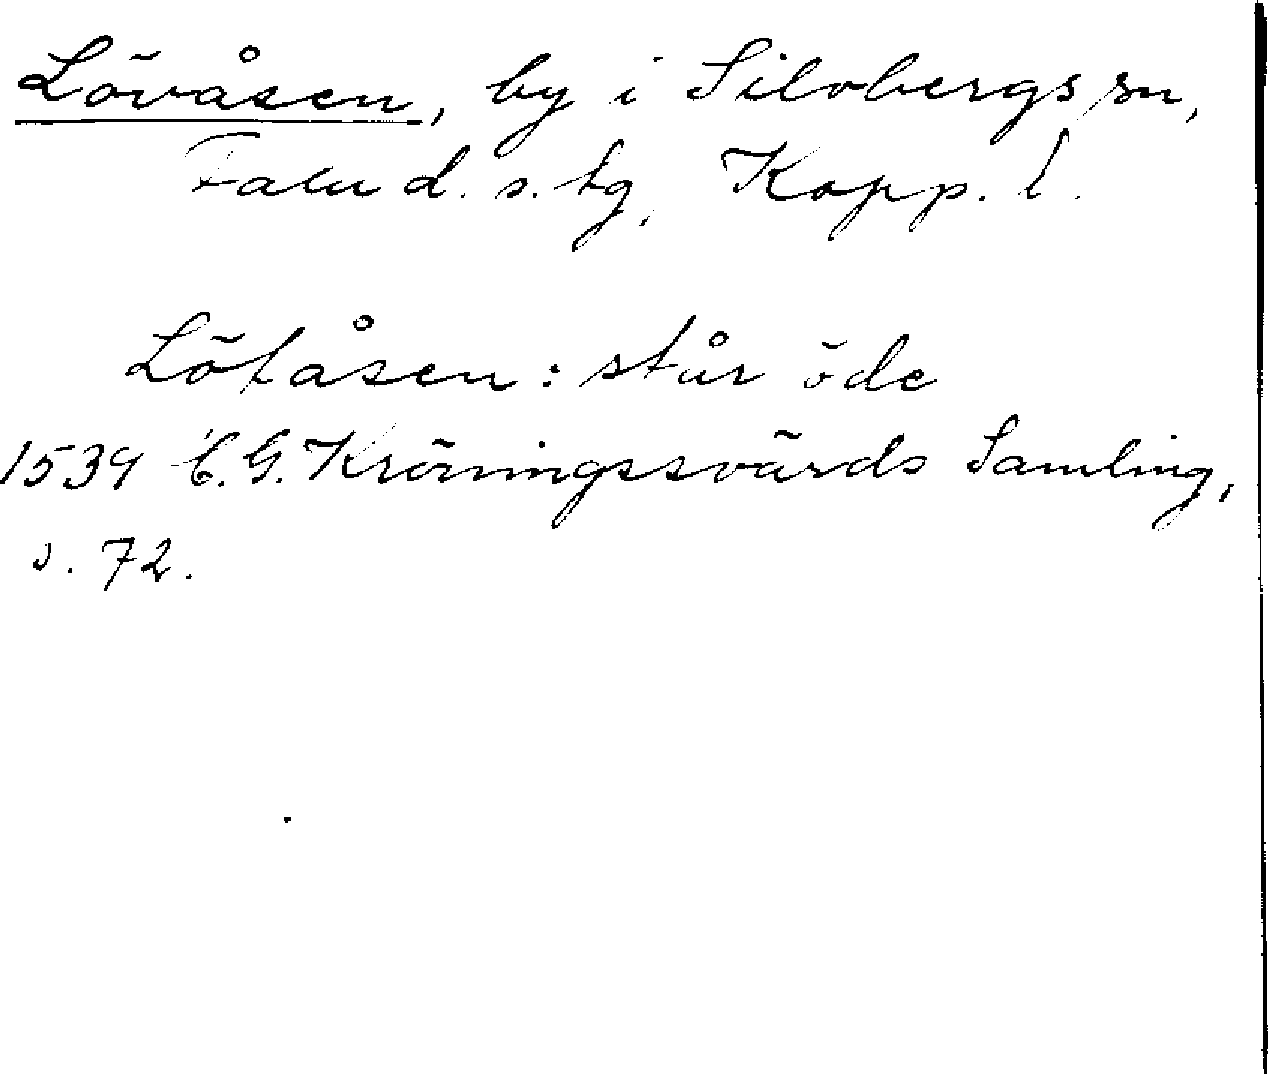 Lövåsen, by i Silvbergs sn,
Falu d. s. tg, Kopp. l.
Lötåsen: står öde
1539 C. G. Kröningssvärds Samling,
s. 72.